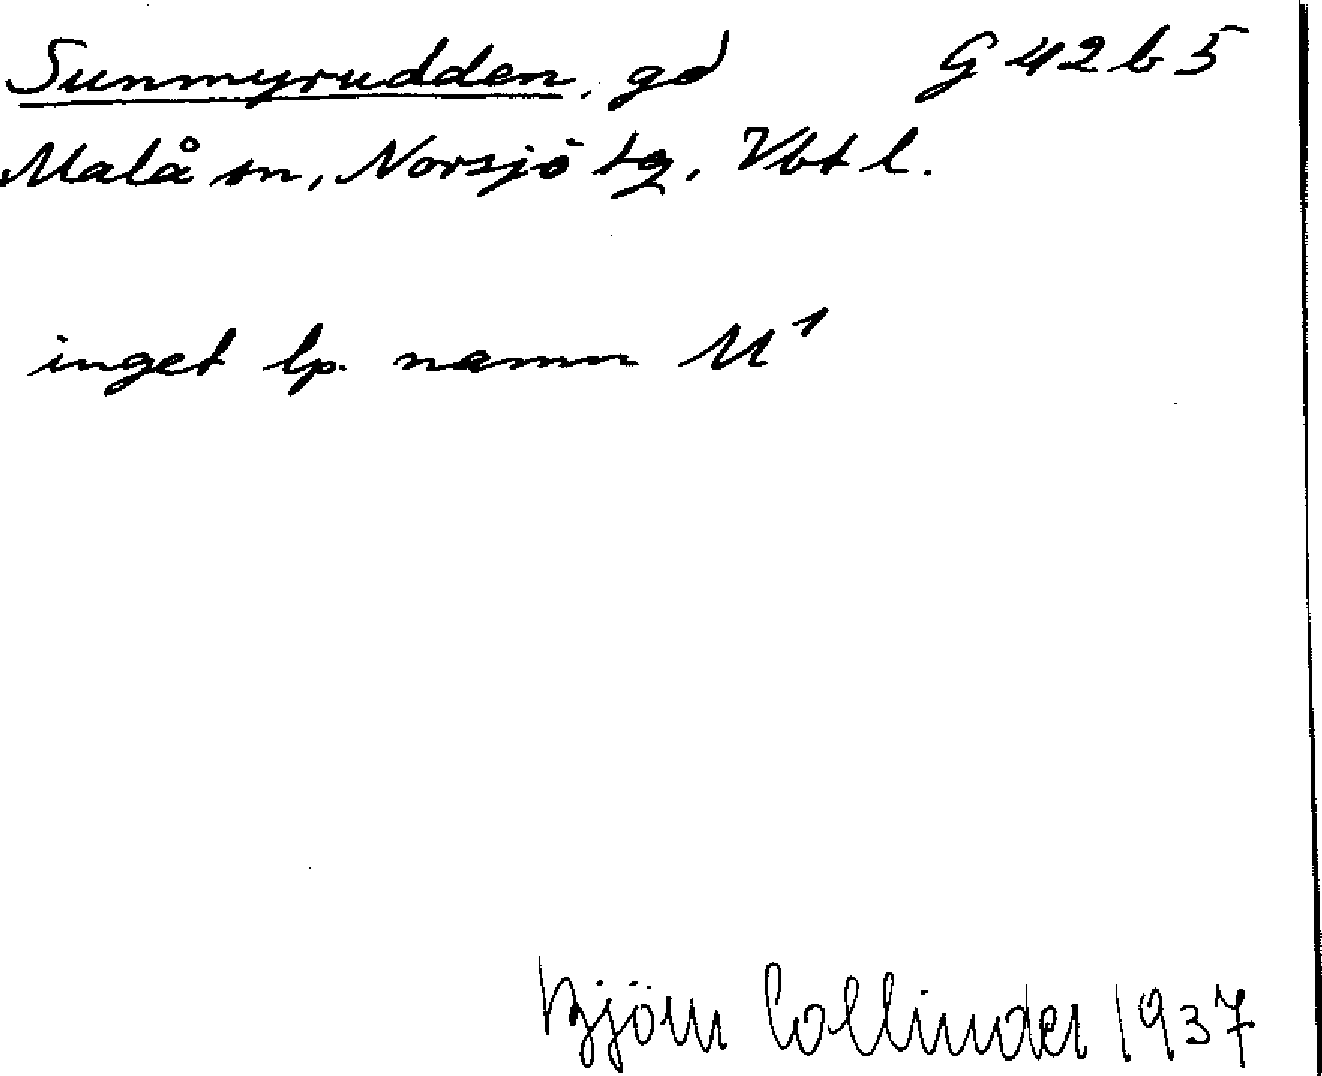 Sunmyrudden, gd G 42 b 5
Malå sn, Norsjö tg. Vbt l.
inget lp. namn M¹
Björn Collinder 1937